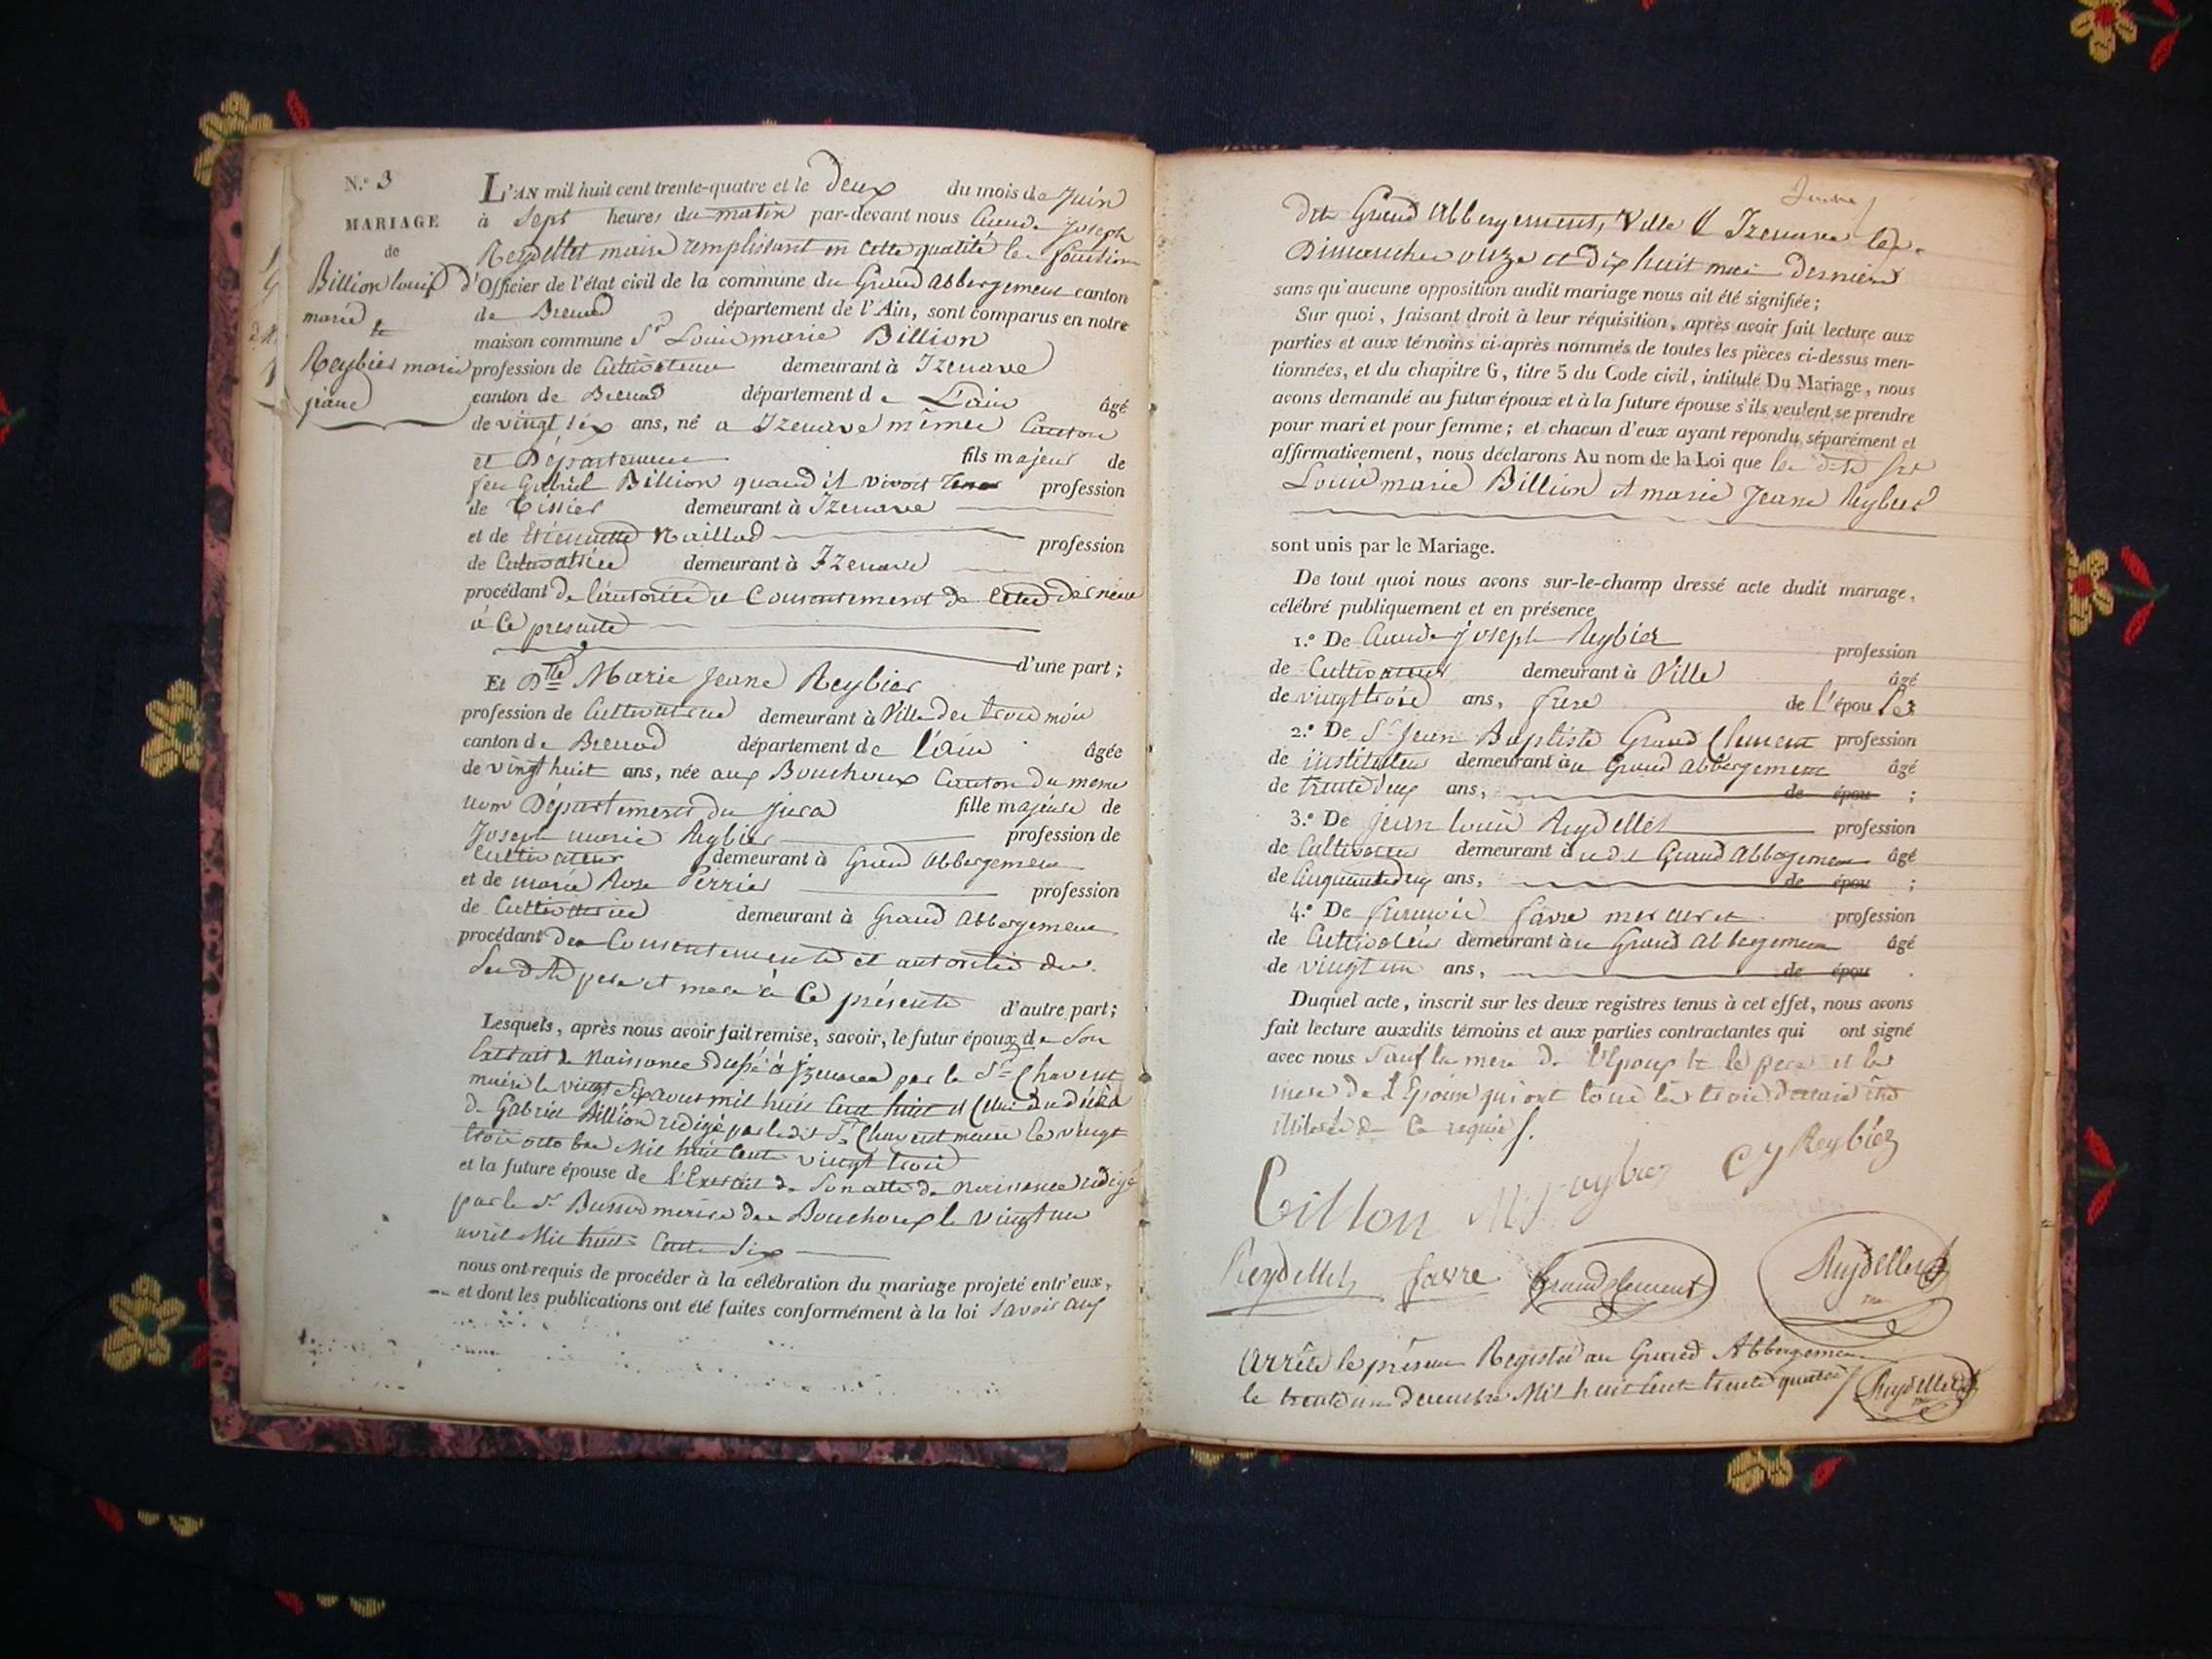 N.º 3
MARIAGE
de
Billion louis
marié
et
Reybier marie
jeane
L'AN mil huit cent trente-quatre et le deux du mois de Juin
à Sept heures du matin par-devant nous Claude Joseph
Reydellet maire remplissant en cette qualité les fonctions
d'Officier de l'état civil de la commune du Grand abbergement canton
de Brenod département de l'Ain, sont comparus en notre
maison commune Sr Louis marie Billion
profession de Cultivateur demeurant à Izenave
canton de Brenod département de L'ain âgé
de vingt six ans, né a Izenave même Canton
et Département fils majeur de
feu Gabriel Billion quand il vivoit profession
de Tissier demeurant à Izenave
et de Etiennette Naillod profession
de Cultivatrice demeurant à Izenave
procédant de l'autorité et Consentement de cette dernière
à Ce presente
d'une part;
Et Dlle Marie Jeane Reybier
profession de Cultivatrice demeurant à Ville depuis trois mois
canton de Brenod département de l'ain âgée
de vingt huit ans, née aux Bouchoux Canton du meme
nom Département du Jura fille majeure de
Joseph marie Reybier profession de
Cultivateur demeurant à Grand abbergement
et de marie Rose Perrier profession
de Cultivatrice demeurant à Grand abbergement
procédant des Consentements et autorité des
Sudits pere et mere à Ce présents d'autre part;
Lesquels, après nous avoir fait remise, savoir, le futur époux de Son
Extrait de Naissance dressé à Izenave par le Sr Chavent
maire le vingt Six aout mil huit Cent huit et Celui du décès
de Gabriel Billion redigé par ledit Sr Chavent maire le vingt
trois octobre Mil huit Cent vingt trois
et la future épouse de l'Extrait de Son acte de Naissance redigé
par le Sr Bussod maire des Bouchoux le vingt un
avril Mil huit Cent Six
nous ont requis de procéder à la célébration du mariage projeté entr'eux,
et dont les publications ont été faites conformément à la loi Savoir aux
dits Grand Abbergement, Ville et Izenave les
Dimanches onze et dix huit mai derniers
sans qu'aucune opposition audit mariage nous ait été signifiée;
Sur quoi, faisant droit à leur réquisition, après avoir fait lecture aux
parties et aux témoins ci-après nommés de toutes les pièces ci-dessus men-
tionnées, et du chapitre 6, titre 5 du Code civil, intitulé Du Mariage, nous
avons demandé au futur époux et à la future épouse s'ils veulent se prendre
pour mari et pour femme; et chacun d'eux ayant répondu séparément et
affirmativement, nous déclarons Au nom de la Loi que les dits
Louis marie Billion et marie Jeane Reybier
sont unis par le Mariage.
De tout quoi nous avons sur-le-champ dressé acte dudit mariage,
célébré publiquement et en présence
1.º De Claude joseph Reybier profession
de Cultivateur demeurant à Ville âgé
de vingt trois ans, frere de l'épouse
2.º De Sr Jean Baptiste Grand Clement profession
de instituteur demeurant au Grand abbergement âgé
de trente deux ans, de épou ;
3.º De jean louis Reydellet profession
de Cultivateur demeurant à Grand abbergement âgé
de Cinquante deux ans, de épou ;
4.º De francois favre mercuret profession
de Cultivateur demeurant au Grand abbergement âgé
de vingt un ans, de épou
Duquel acte, inscrit sur les deux registres tenus à cet effet, nous avons
fait lecture auxdits témoins et aux parties contractantes qui ont signé
avec nous Sauf la mere de l'Epoux et le pere et la
mere de l'Epouse qui ont tous les trois déclaré être
illiterés de Ce requis
billon M J Reybier C J Reybier
Reydellet favre Grandclement Reydellet
Arrêté le présent Registre au Grand Abbergement
le trente un decembre Mil huit Cent trente quatre Reydellet